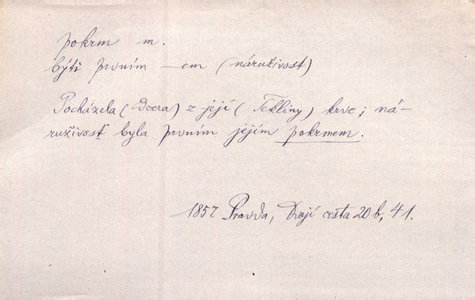 pokrm m.
býti prvním —em (náruživost)
Pocházela (dcera) z její (Tekliny) krve; ná-
ruživost byla prvním jejím pokrmem.
1857 Pravda, Dvojí cesta 20b, 41.